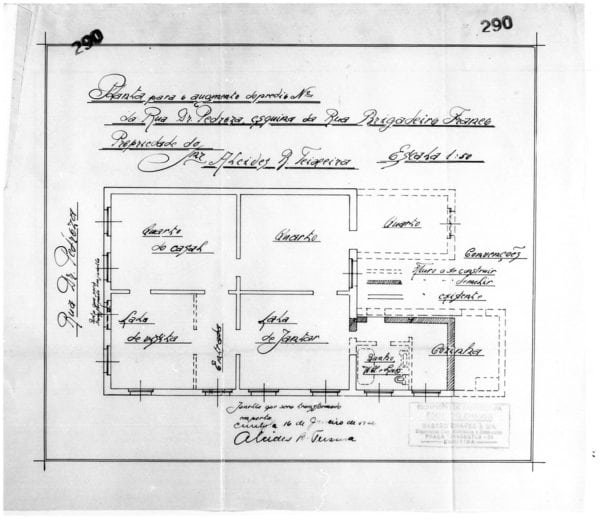 290
290
Planta para o augmento do predio Nº
da Rua Dr Pedroza, esquina da Rua Brigadeiro Franco
Propriedade do
Snr. Alcides R Teixeira Escala 1:50
Rua Dr Pedroza
Quarto
de casal
Quarto
Quarto
Convenções
Muro a se construir
demolir
existente
Sala
de visita
Entrada
Sala
de Jantar
Banho
Cozinha
Janella que sera transformada
em porta
16 de Janeiro de
Alcides R. Teixeira
CURITIBA